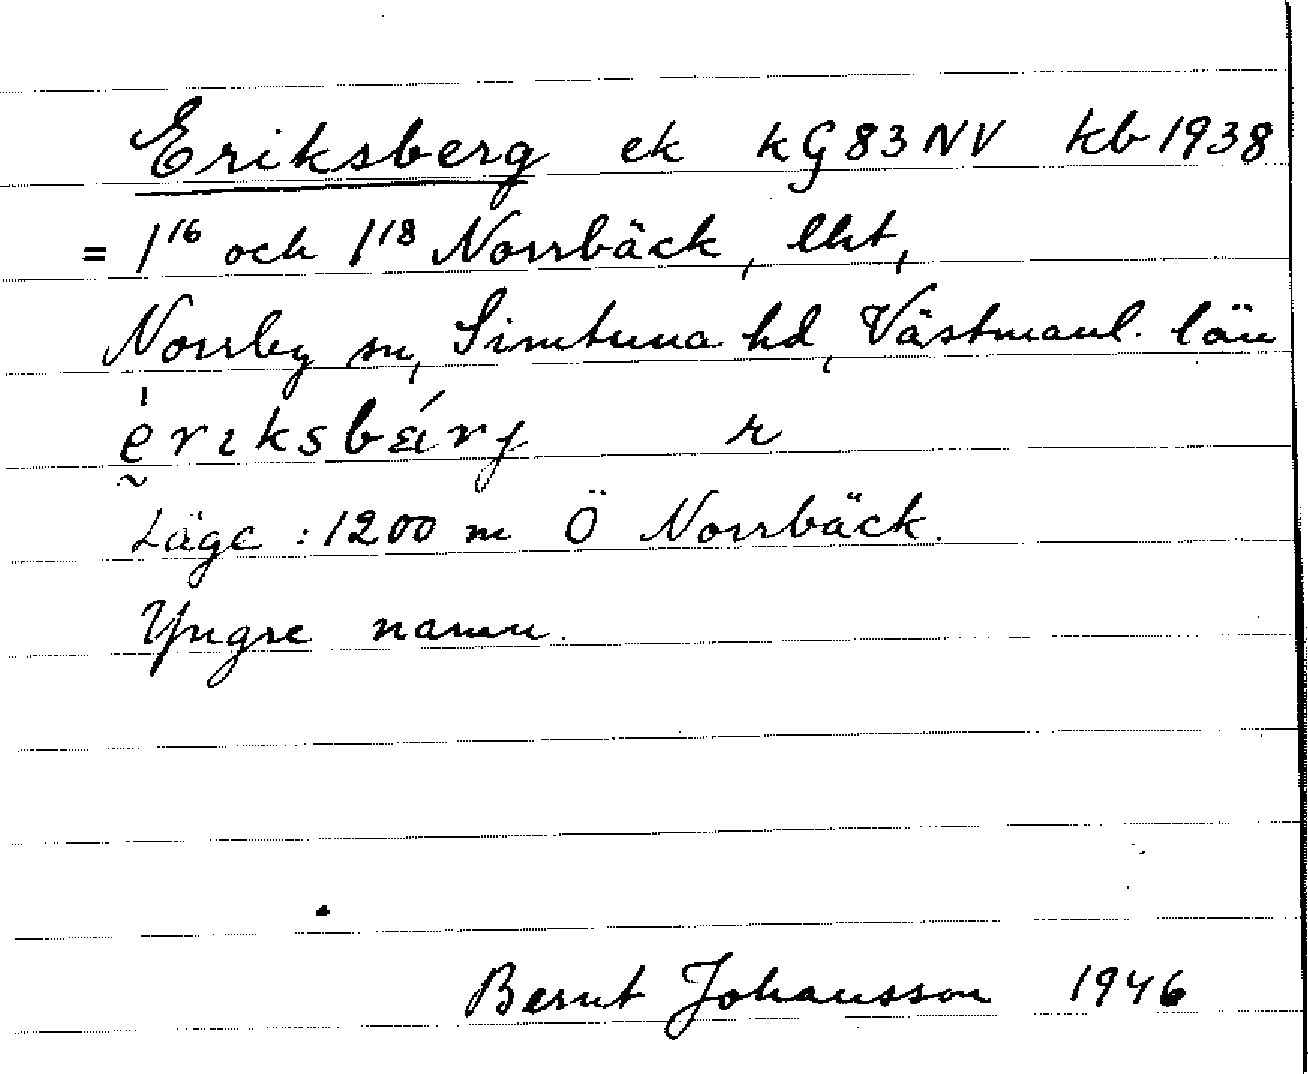 Eriksberg ek kG83NV kb 1938
= 1¹⁶ och 1¹⁸ Norrbäck, lht,
Norrby sn, Simtuna hd, Västmanl. län
ериksbärj r
Läge: 1200 m Ö Norrbäck.
Yngre namn.
Bernt Johansson 1946